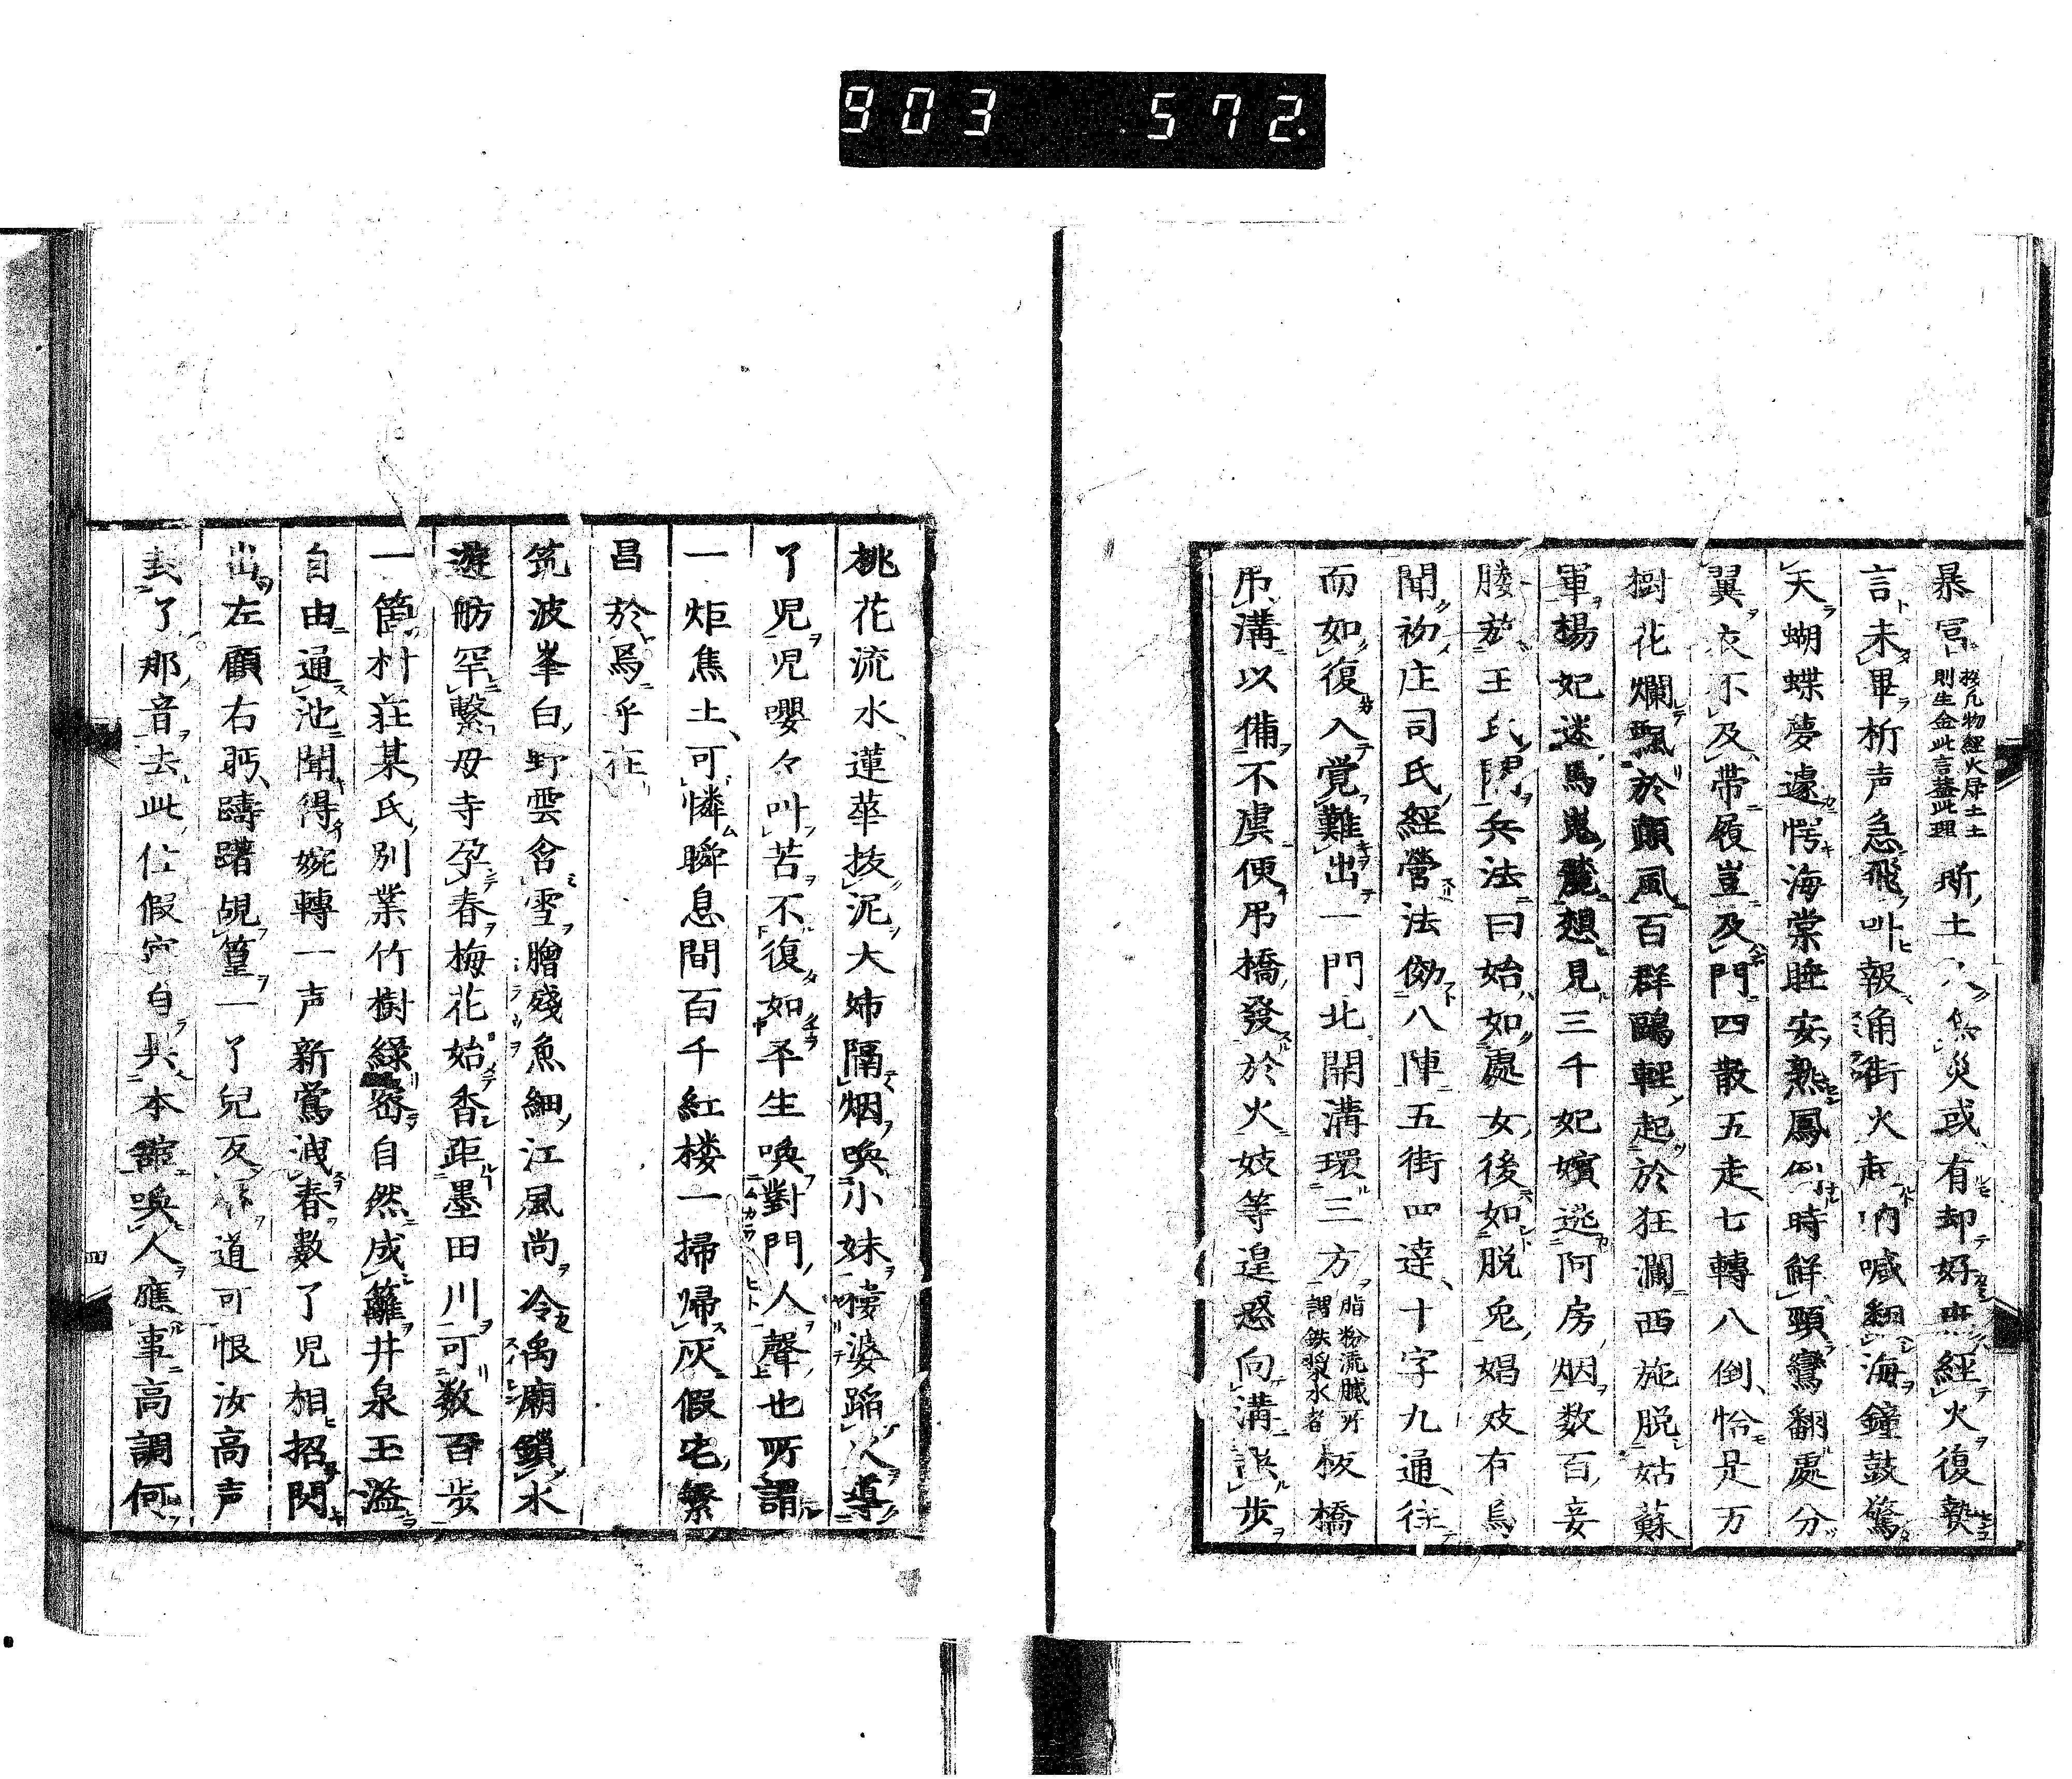 903 572
暴富
按凡物經火归土土
則生金此言蓋此理
所土
災或有却好無經火復贄
言未畢析声急飛叫報角街火起吶喊翻海鐘鼓驚
天蝴蝶夢遽愕海棠睡安熟鳳倒時鮮頸鸞翻處分
翼衣不及帶履豈及門四散五走七轉八倒恰是万
樹花爛飄於顛風百群鷗輕起於狂瀾西施脱姑蘇
軍楊妃迷馬嵬麓想見三千妃嬪逃阿房烟数百妾
媵於王氏鬪兵法曰始如處女後如脱兎娼妓有烏
聞初庄司氏經營法倣八陣五街四達十字九通往
而如復入覚難出一門北開溝環三方
脂粉流膩所
謂鉄漿水者
板橋
吊溝以備不虞便吊橋發於火妓等遑惑向溝誤步
桃花流水蓮華抜泥大姉隔烟喚小妹褸婆蹈火導
了児児嚶々叫苦不復如平生喚對門人聲也所謂
一炬焦土可憐瞬息間百千紅楼一掃帰灰假宅繁
昌於焉乎在
筑波峯白野雲含雪膾殘魚細江風尚冷禹廟鎖水
遊舫罕繋母寺孕春梅花始香距墨田川可数百步
一箇村荘某氏別業竹樹緑密自然成籬井泉玉溢
自由通池聞得婉轉一声新鴬洩春数了児相招閃
出左顧右眄躊躇覘篁一了兒反
道可恨汝高声
了那音去此位假宅自
本舘喚人應事高調何
四